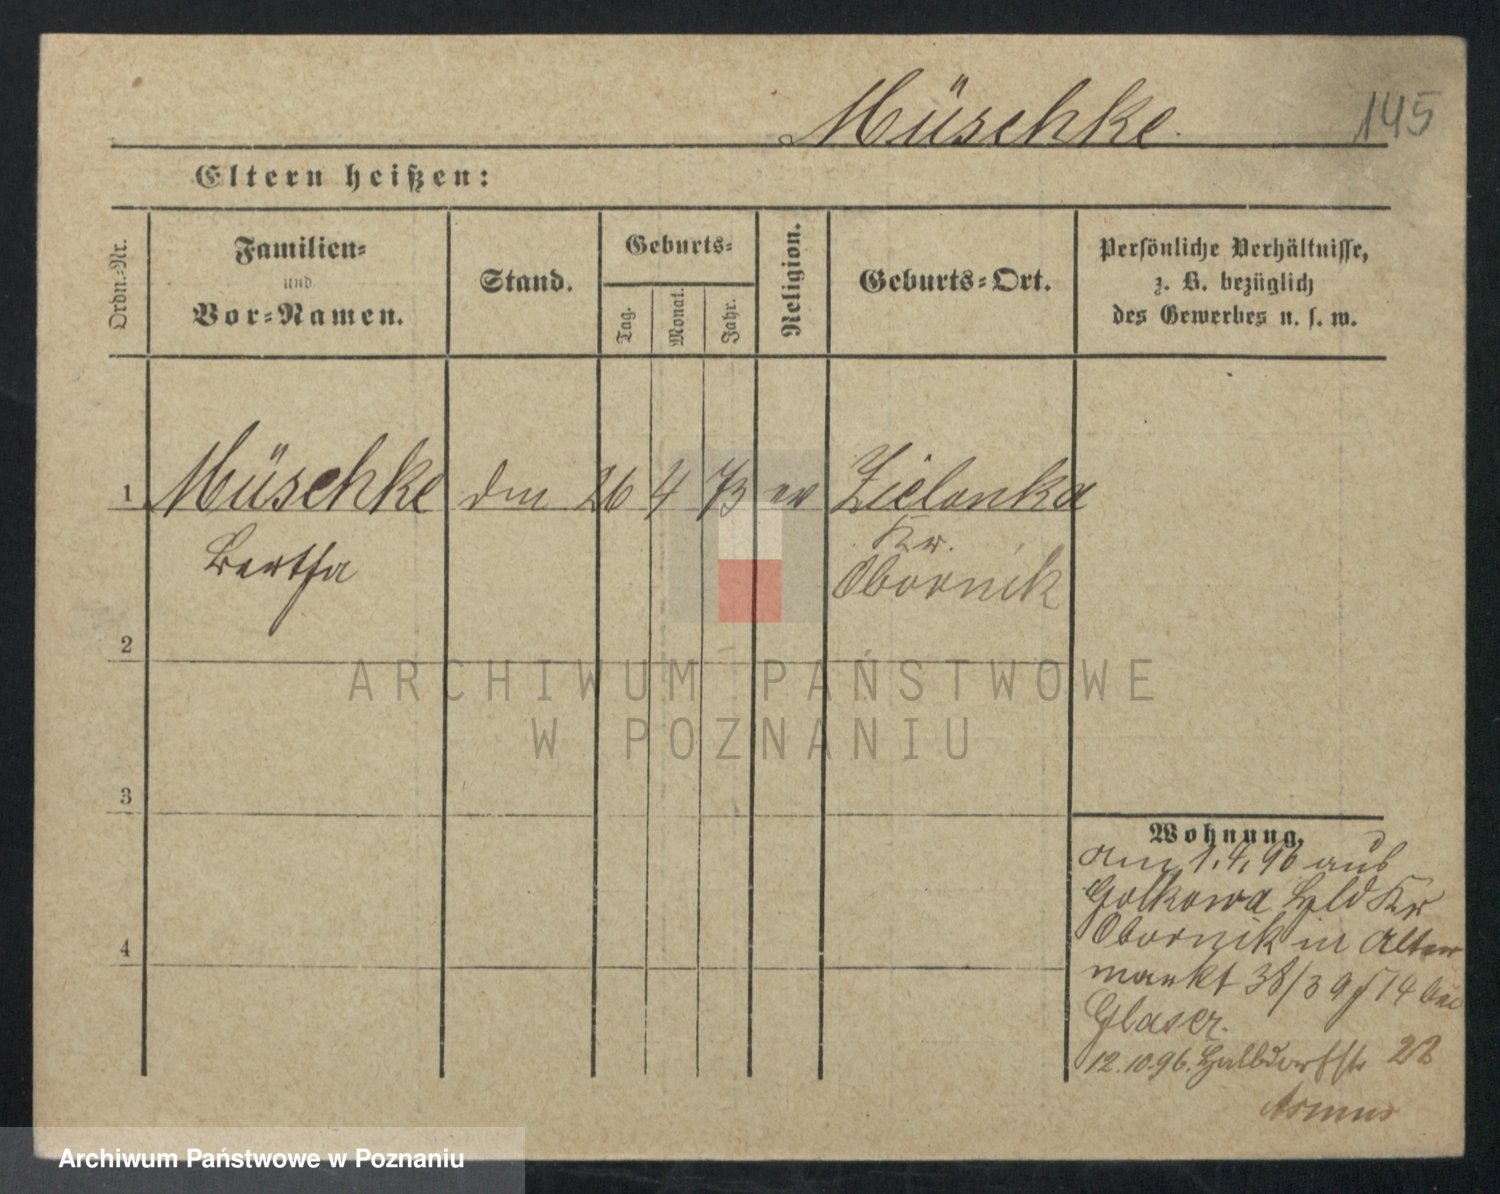 Müschke
145
Eltern heißen:
Ordn.-Nr.
Familien-
und
Vor-Namen.
Stand.
Geburts-
Tag.
Monat.
Jahr.
Religion.
Geburts-Ort.
Persönliche Verhältnisse,
z. B. bezüglich
des Gewerbes u. s. w.
1 Müschke 26 4 73 ev Zielonka
Bertha
Kr.
Obornik
2
ARCHIWUM PAŃSTWOWE
W POZNANIU
3
4
Wohnung.
am 1.4.96 aus
Golkowa Hld Kr
Obornik in Alter
markt 38/39 14 bei
Glaser.
12.10.96. Halbdorfstr 22
Asmus
Archiwum Państwowe w Poznaniu